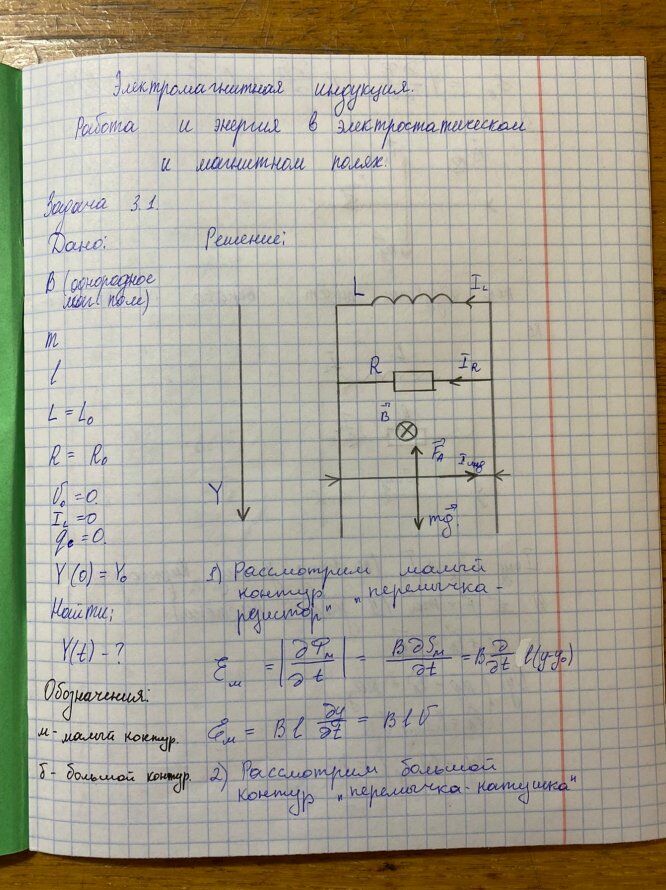 Электромагнитная индукция.
Работа и энергия в электростатическом
и магнитном полях.
Задача 3.1.
Дано: Решение:
B (однородное
маг. поле)
m
l
L = L₀
R = R₀
v₀ = 0
I_L = 0
q₀ = 0.
Y(0) = Y₀
Найти:
Y(t) - ?
Обозначения:
м - малый контур.
б - большой контур.
L I_L
R I_R
B⃗
F⃗_A
I_инд
Y
mg⃗
1) Рассмотрим малый
контур "перемычка-
резистор"
Ɛ_м = |∂Φ_м/∂t| = B∂S_м/∂t = B ∂/∂t l(y-y₀)
Ɛ_м = Bl ∂y/∂t = Blv
2) Рассмотрим большой
контур "перемычка-катушка"